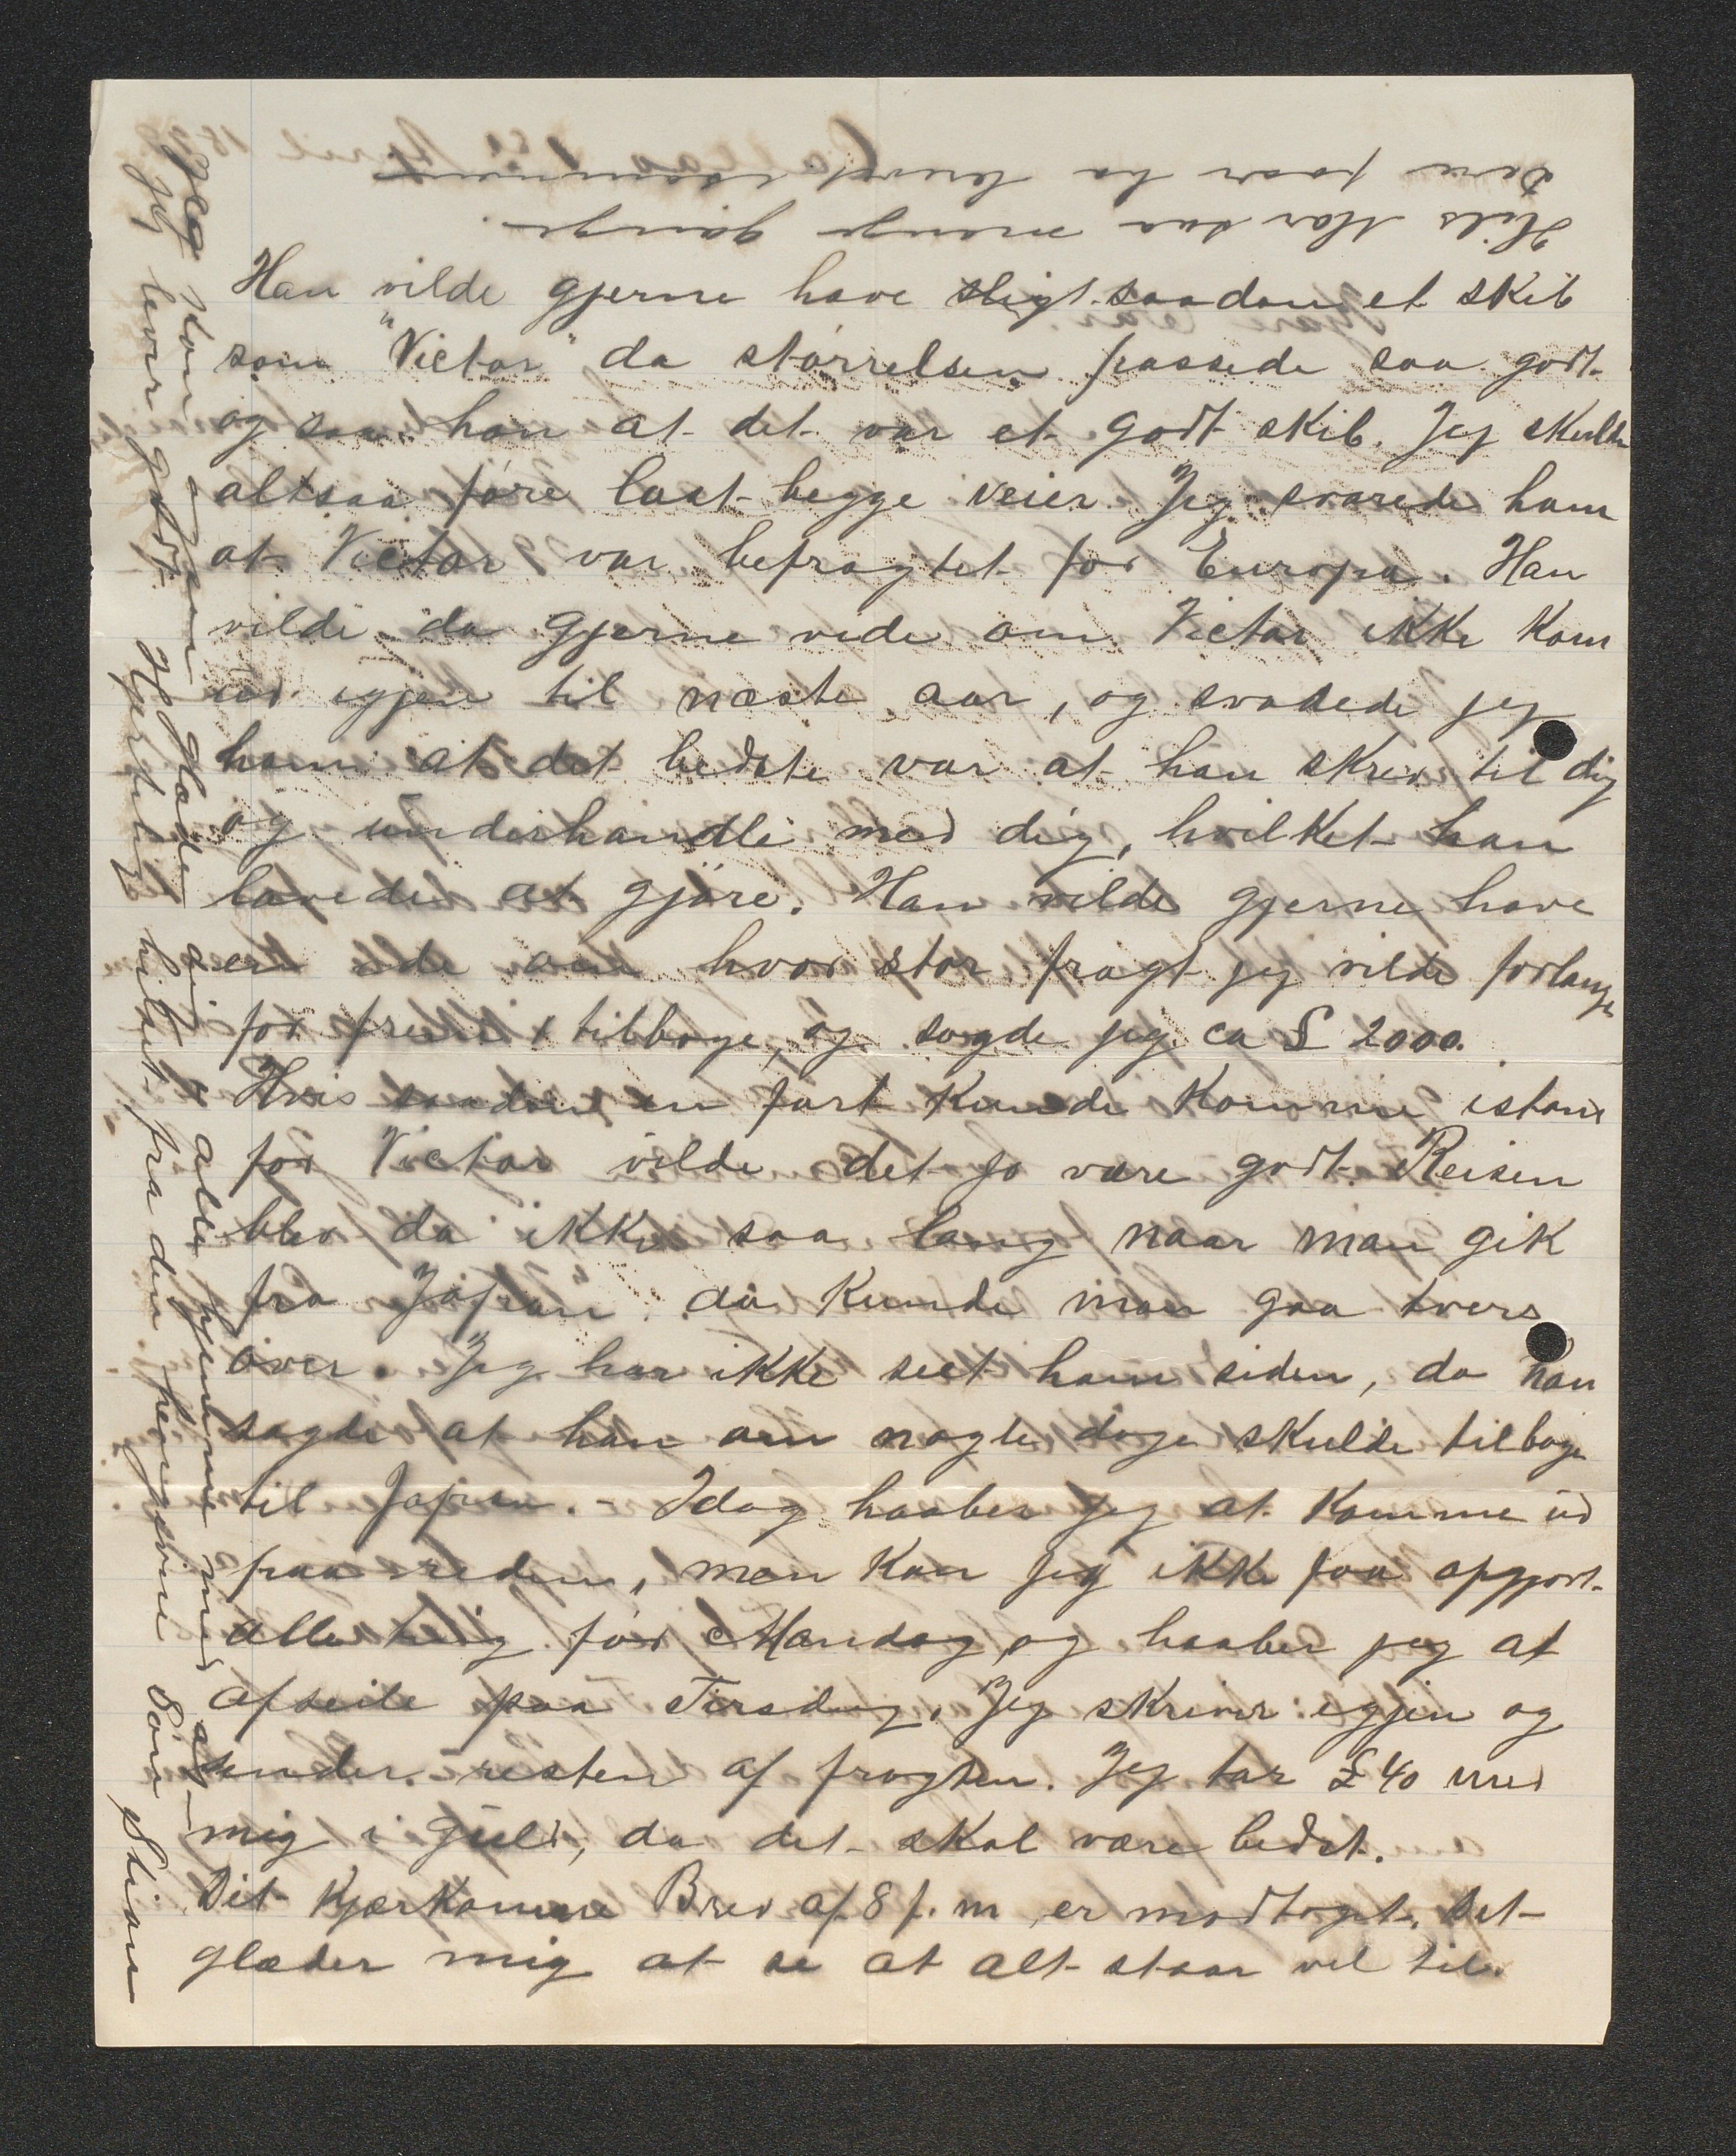 Han vilde gjerne have sligt saadan et skib
som "Victor" da størrelsen passede saa godt
og saa han at det var et godt skib. Jeg skulde
altsaa føre last begge veier. Jeg svarede ham
at Victor var befragtet for Europa. Han
vilde da gjerne vide om Victor ikke kom
ud igjen til næste aar, og svarede jeg
ham at det bedste var at han skrev til dig
og underhandle med dig, hvilket han
lovede at gjøre. Han vilde gjerne have
en ide om hvor stor fragt jeg vilde forlange
for frem & tilbage, og sagde jeg ca £ 2000.
Hvis saadan en fart kunde komme istand
for Victor vilde det jo være godt. Reisen
blev da ikke saa lang naar man gik
fra Japan da kunde man gaa tvers
over. Jeg har ikke seet ham siden, da han
sagde at han om nogle dage skulde tilbage
til Japan. - Idag haaber jeg at komme ud
paa reden, men kan jeg ikke faa opgjort
alle ting før Mandag, og haaber jeg at
afseile paa Tirsdag. Jeg skriver igjen og
sender resten af fragten. Jeg tar £ 40 med
mig i Guld, da det skal være bedst.
Dit kjærkomne Brev af 8 f. m er modtaget. Det
glæder mig at se at alt staar vel til.
Jeg kan glæde dig & alle hjemme med at
jeg lever godt. Hjertelig hilset fra din hengivne Søn Stian
Hils Mor saa mange gange.
Dere faar ha levet